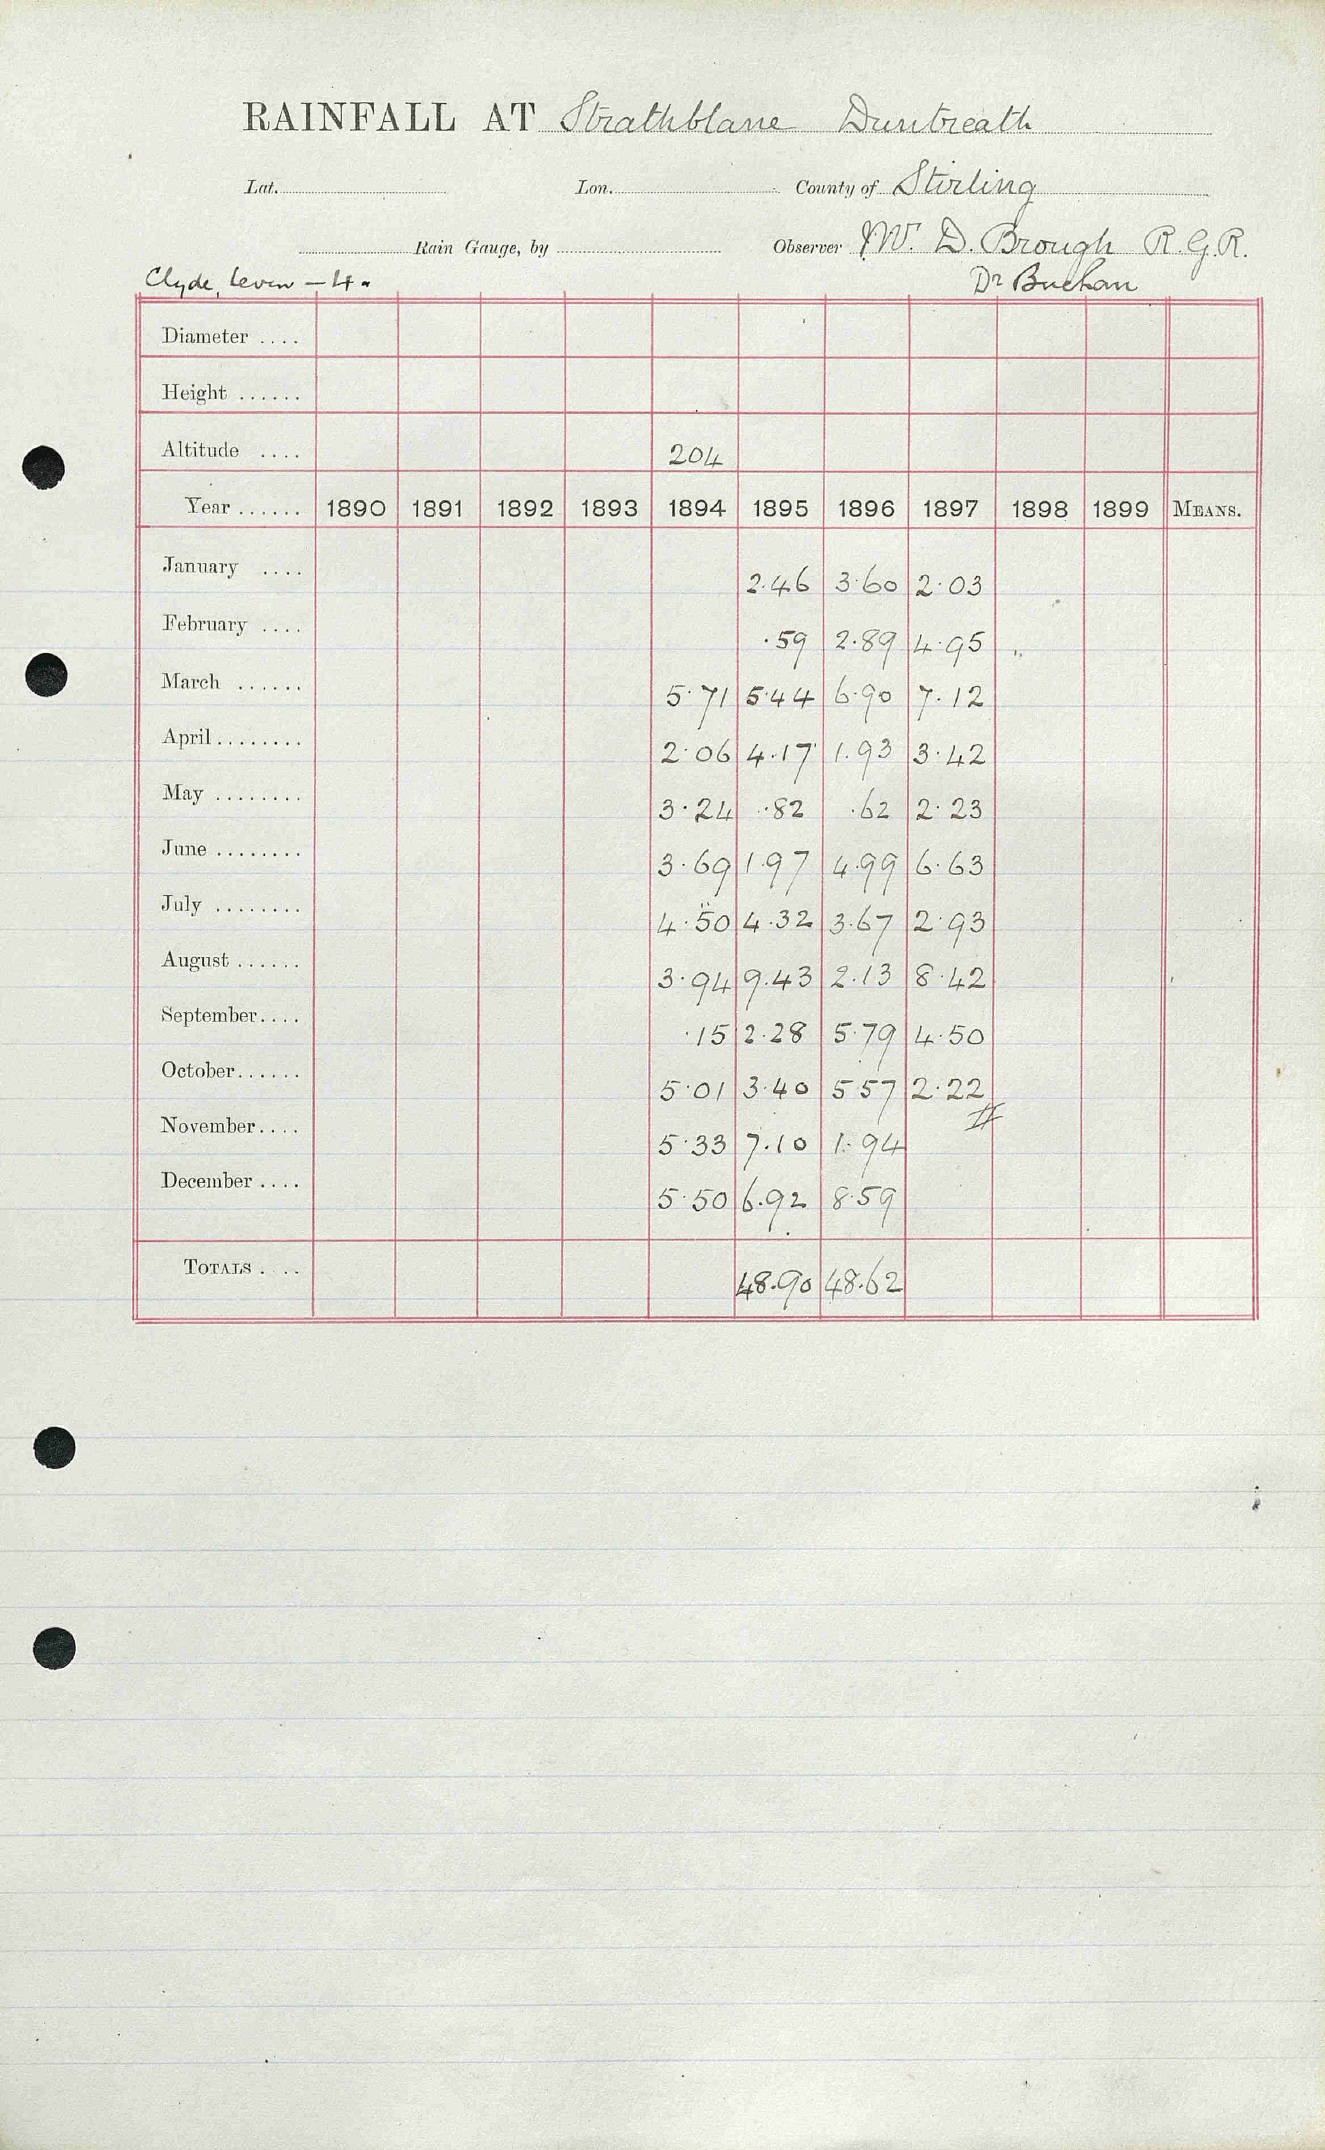 RAINFALL AT Strathblane Duntreath
Lat. Lon. County of Stirling
Rain Gauge, by Observer W. D. Brough R.G.R.
Clyde, Leven - 4. Dr Buchan
Diameter ....
Height ......
Altitude .... 204
Year ...... 1890 1891 1892 1893 1894 1895 1896 1897 1898 1899 MEANS.
January .... 2.46 3.60 2.03
February .... .59 2.89 4.95
March ...... 5.71 5.44 6.90 7.12
April ........ 2.06 4.17 1.93 3.42
May ........ 3.24 .82 .62 2.23
June ........ 3.69 1.97 4.99 6.63
July ........ 4.50 4.32 3.67 2.93
August ...... 3.94 9.43 2.13 8.42
September.... .15 2.28 5.79 4.50
October...... 5.01 3.40 5.57 2.22
November.... 5.33 7.10 1.94
December .... 5.50 6.92 8.59
TOTALS .... 48.90 48.62